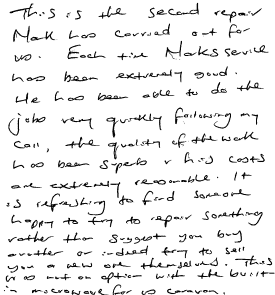 This is the second repair
Mark has carried out for
us. Each time Marks service
has been extremely good.
He has been able to do the
jobs very quickly following my
call, the quality of the work
has been superb & his costs
are extremely reasonable. It
is refreshing to find someone
happy to try to repair something
rather than suggest you buy
another or indeed try to sell
you a new one themselves. This
was not an option with the built
in microwave for us caravan.